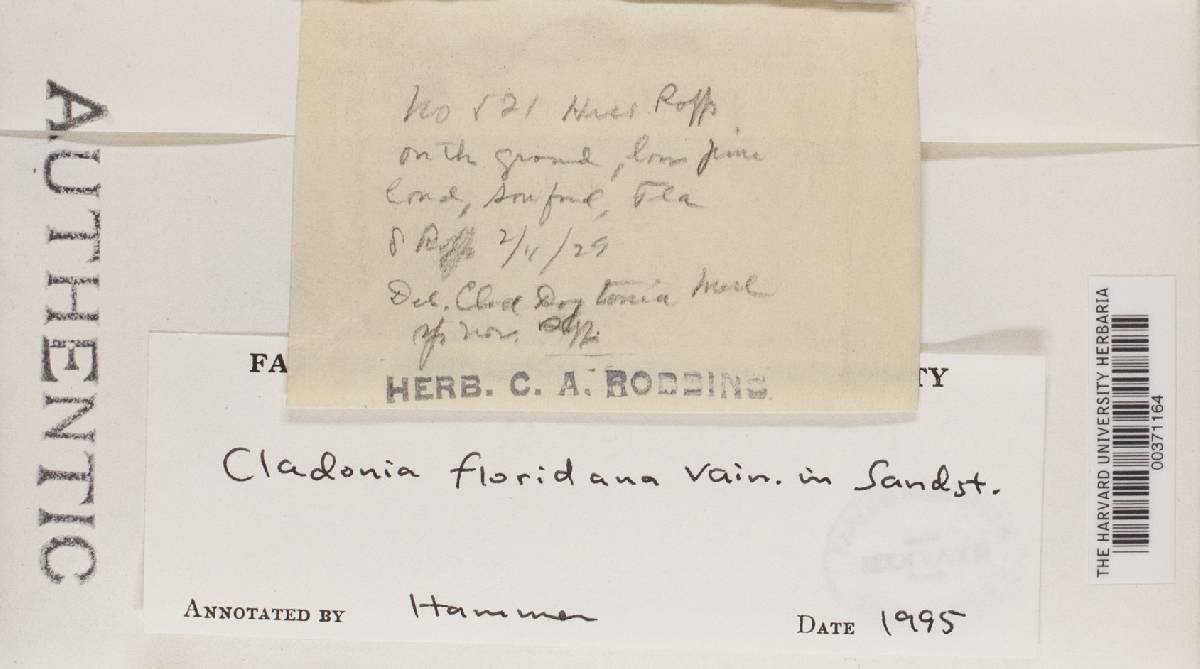 AUTHENTIC
No 521 Herb Rapp
on the ground, low pine
land, Sanford, Fla
S Rapp 2/11/29
Det. Clad Daytonia
sp nov.
HERB. C. A. ROBBINS
FA TY
Cladonia floridana Vain. in Sandst.
ANNOTATED BY Hammer DATE 1995
THE HARVARD UNIVERSITY HERBARIA
00371164